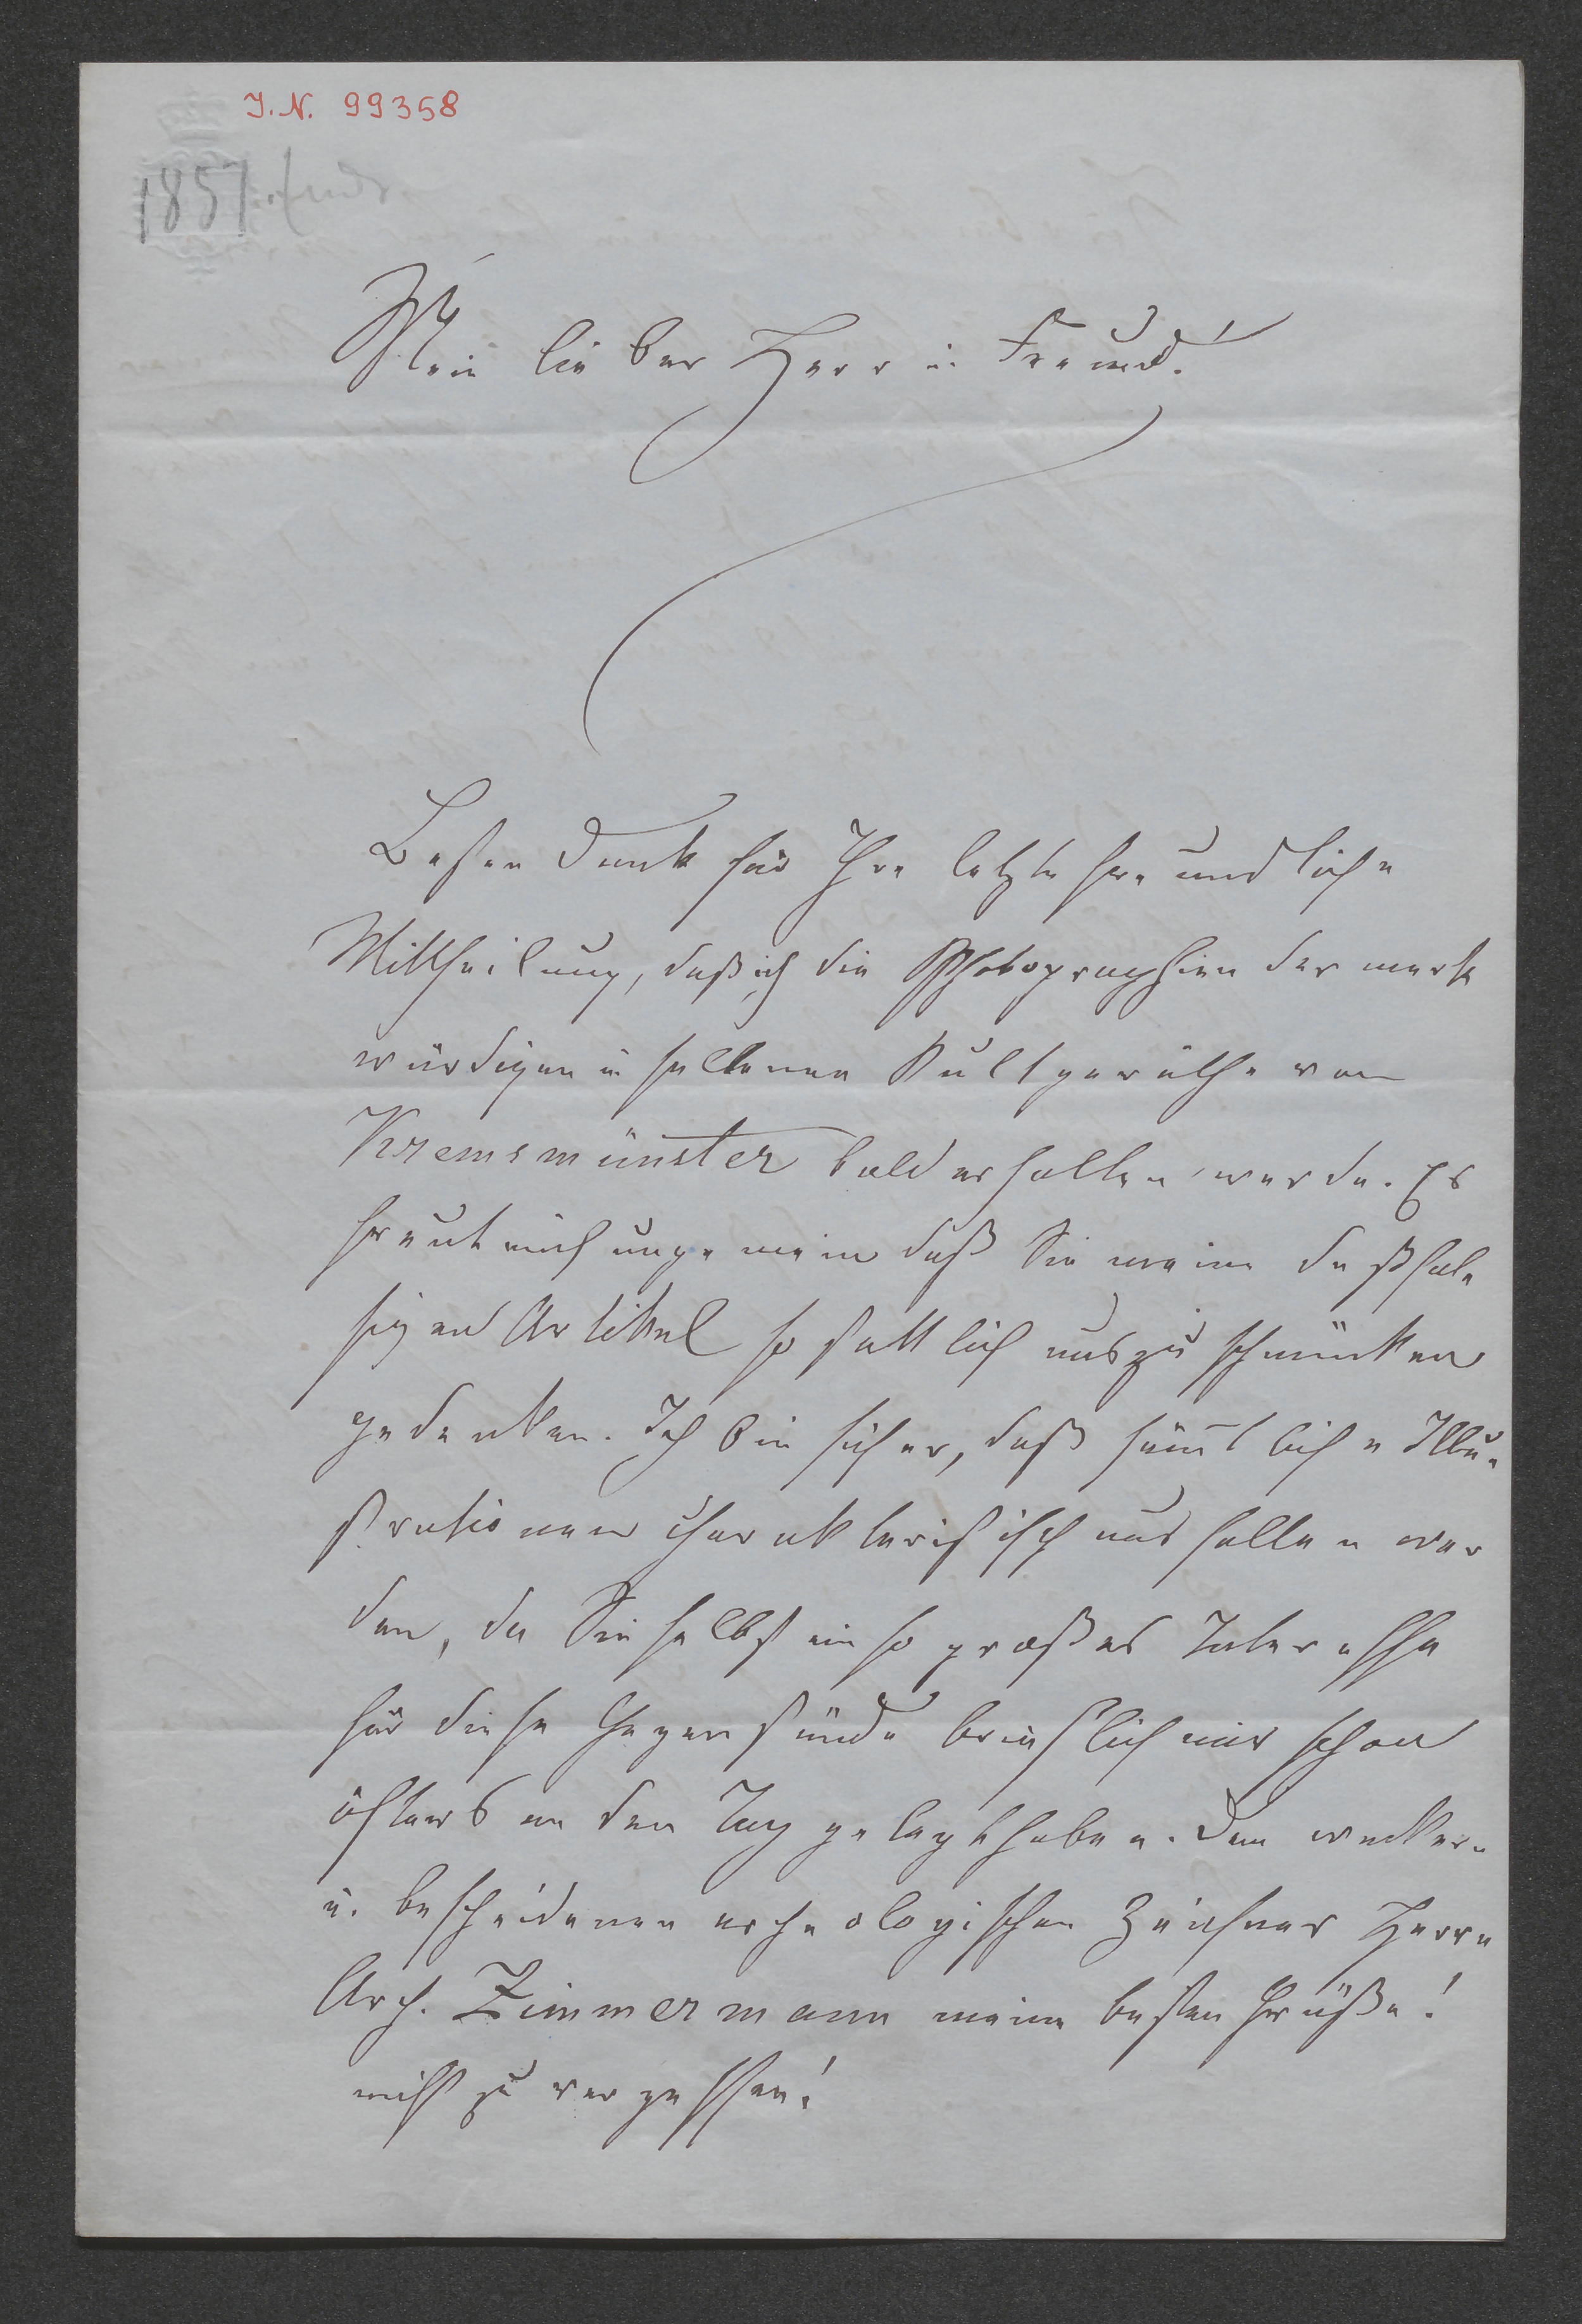 I.N. 99358
1857. Ende
Mein lieber Herr u Freund!
Besten Dank für Ihre letzte freundliche
Mittheilung, daß ich die Photographien der merk
würdigen u seltenen Kultgeräthe von
Kremsmünster bald erhalten werde. Es
freut mich ungemein daß Sie meine deßfal
sigen Artikel so stattlich auszuschmücken
gedenken. Ich bin sicher, daß sämtliche Illu-
strationen charakteristisch ausfallen wer
den, da Sie selbst ein so großes Interesse
für diese Gegenstände brieflich mir schon
öfters an den Tag gelegt haben. Dem wackern
u. bescheidenen archeologischen Zeichner Herrn
Arch. Zimmermann meine besten Grüße!
nicht zu vergessen!